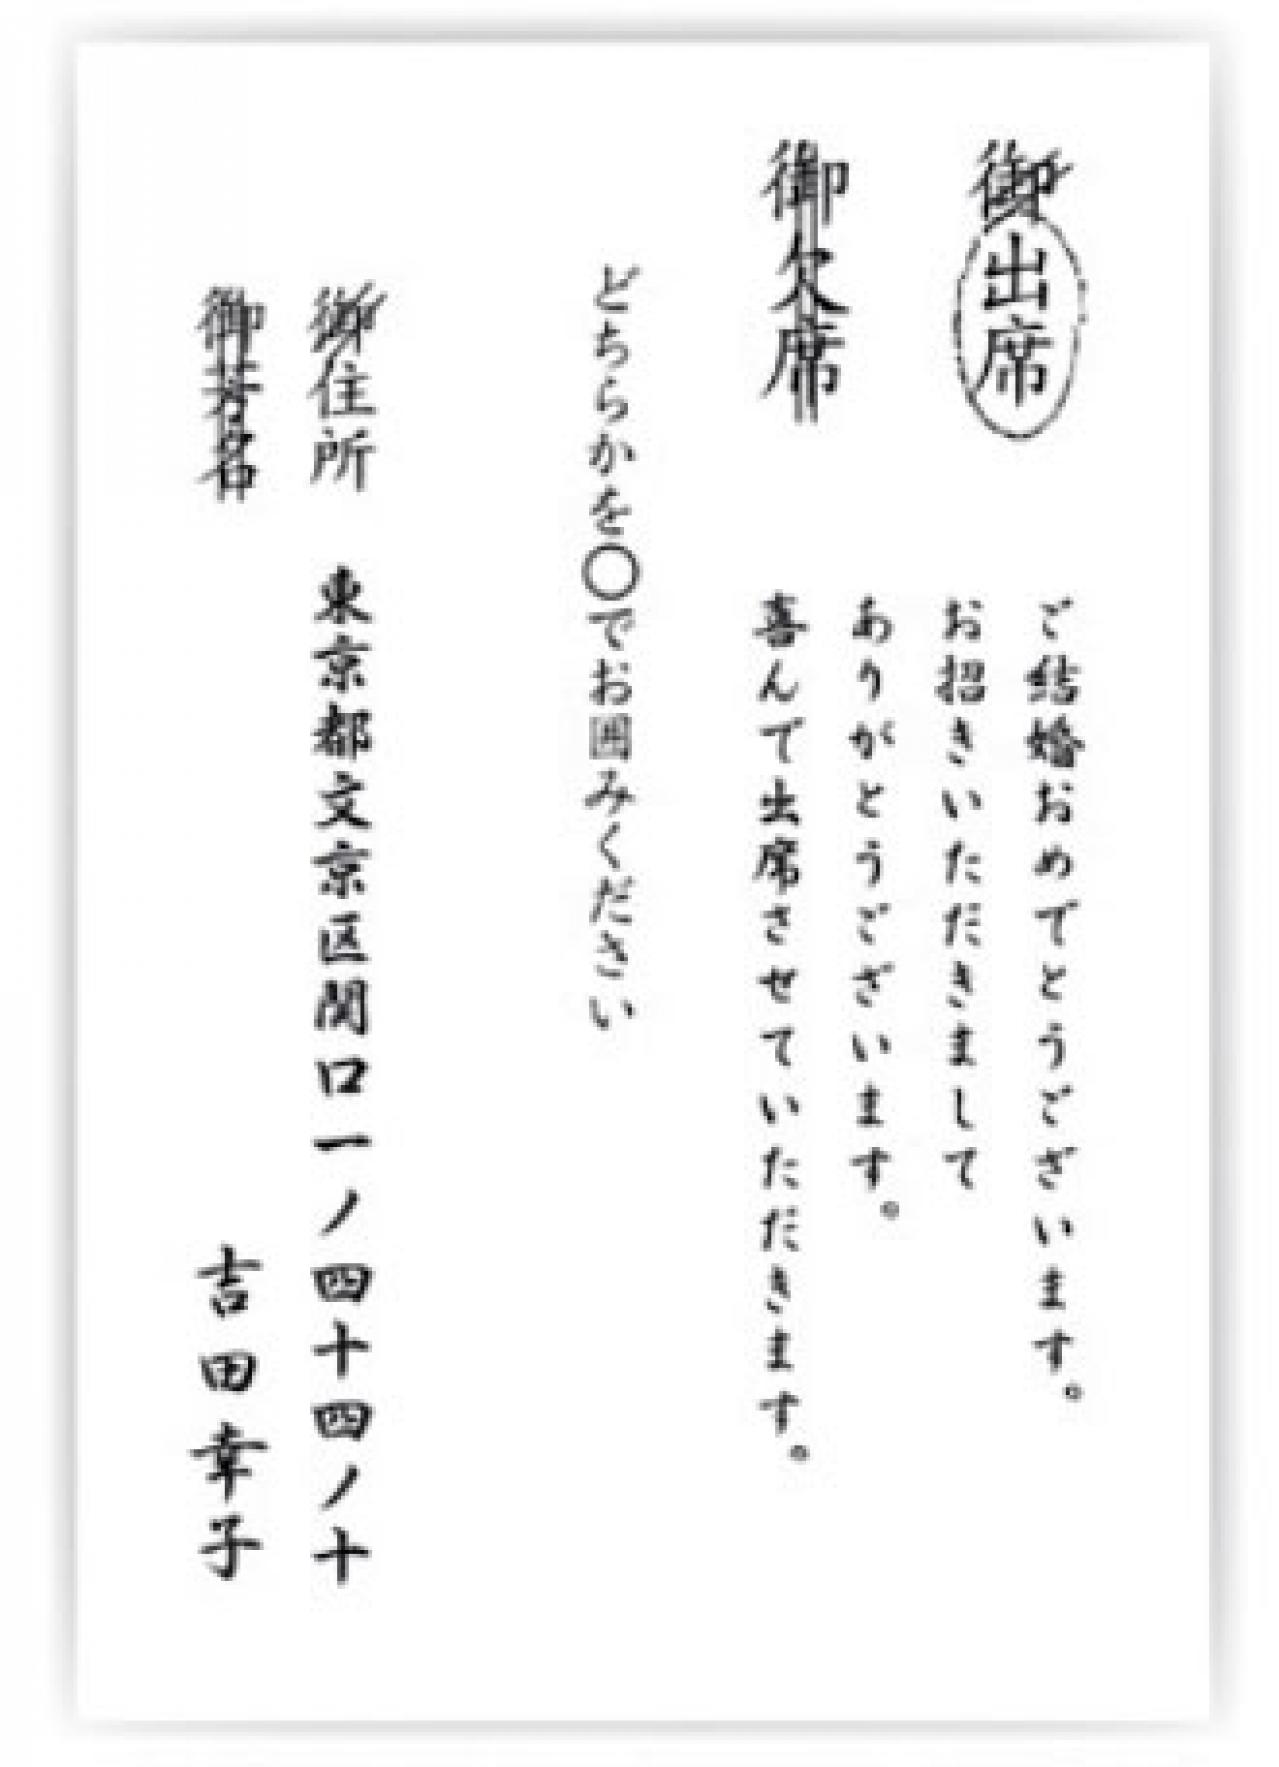 御出席
ご結婚おめでとうございます。
お招きいただきまして
ありがとうございます。
御欠席
喜んで出席させていただきます。
どちらかを○でお囲みください
御住所 東京都文京区関口一ノ四十四ノ十
御芳名 吉田幸子